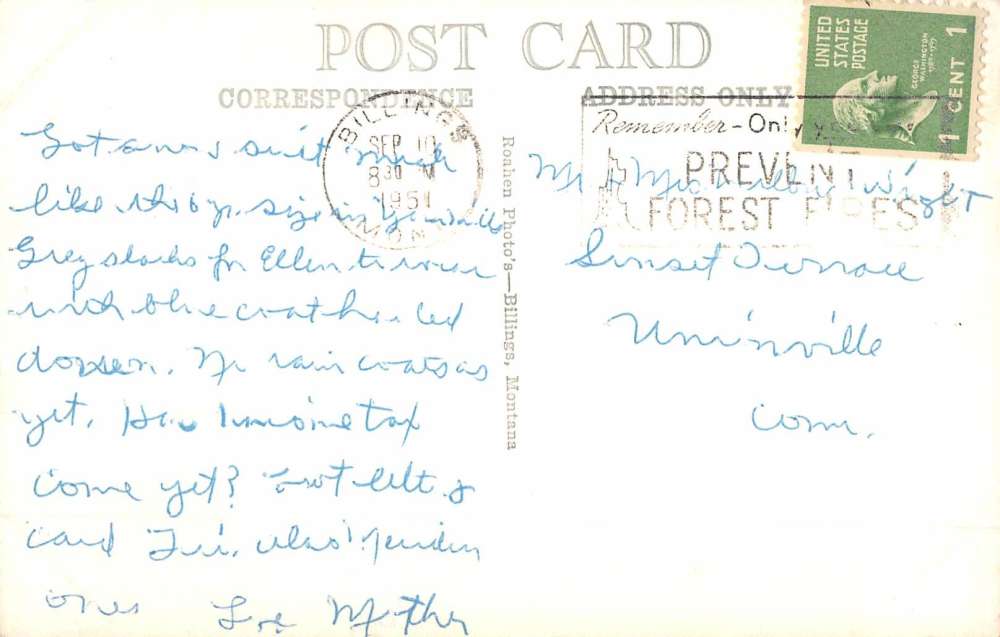 POST CARD
CORRESPONDENCE
ADDRESS ONLY
UNITED STATES POSTAGE
GEORGE WASHINGTON
1789-1797
1 CENT 1
BILLINGS
SEP 10
8 30 M
1951
MONT
Remember - Only you
PREVENT
FOREST FIRES
Roahen Photo's—Billings, Montana
Got a suit much
like this size in
Grey slacks for Ellen to wear
with blue coat
No rain coats as
yet. Has Income tax
come yet? Got
card Fri. also
ones Love Mother
Mr & Mrs Wright
Sunset Terrace
Unionville
Conn.